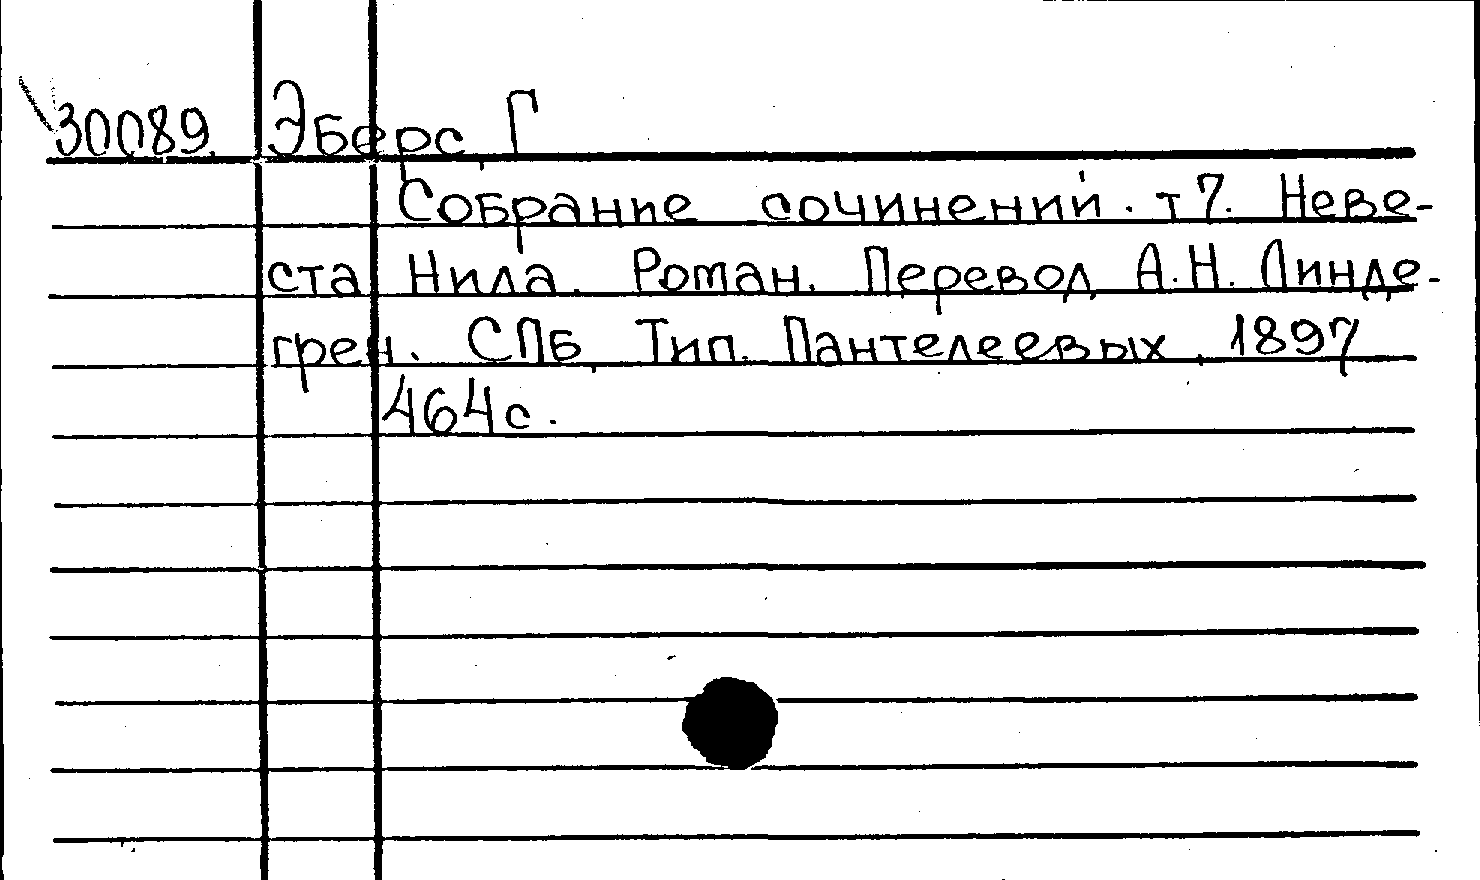 30089. Эберс, Г
Собрание сочинений. т 7. Неве-
ста Нила. Роман. Перевод А.Н. Линде-
грен. СПБ, Тип. Пантелеевых, 1897
464 с.